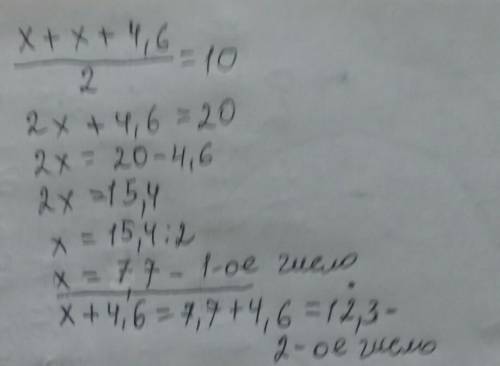 x + x + 4,6
2
= 10
2x + 4,6 = 20
2x = 20 - 4,6
2x = 15,4
x = 15,4 : 2
x = 7,7 - 1-ое число
x + 4,6 = 7,7 + 4,6 = 12,3 -
2-ое число